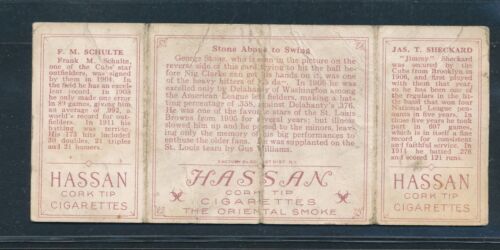 F. M. SCHULTE
Frank M. Schulte,
one of the Cubs' star
outfielders, was signed
by them in 1904. In
the field he has an excel-
lent record. In 1908
he made only one error
in 89 games, giving him
an average of .992, a
world's record for out-
fielders. In 1911 his
batting was terrific.
His 173 hits included
30 doubles, 21 triples
and 21 homers.
HASSAN
CORK TIP
CIGARETTES
Stone About to Swing
George Stone, who is seen in the picture on the
reverse side of this card, trying to hit the ball before
Nig Clarke can get his hands on it, was one
of the heavy hitters of his day. In 1906 he was
excelled only by Delahanty of Washington among
the American League left fielders, making a batting
percentage of .358, against Delahanty's .376.
He was one of the favorite stars of the St. Louis
Browns from 1905 for several years; but illness
slowed him up and he passed to the minors, leaving
only the memory of his big performances to
enthuse the older fans. He was supplanted on the
St. Louis team by Gus Williams.
HASSAN
CORK TIP
CIGARETTES
THE ORIENTAL SMOKE
JAS. T. SHECKARD
"Jimmy" Sheckard
was secured by the
Cubs from Brooklyn in
1906, and first played
with them that year,
so he has been one of
the regulars in the
band that won four
National League pen-
nants in five years. In
those five years he took
part in 667 games,
which is in itself a fine
record for consistent
and faithful service. In
1911 he batted .276
and scored 121 runs.
HASSAN
CORK TIP
CIGARETTES